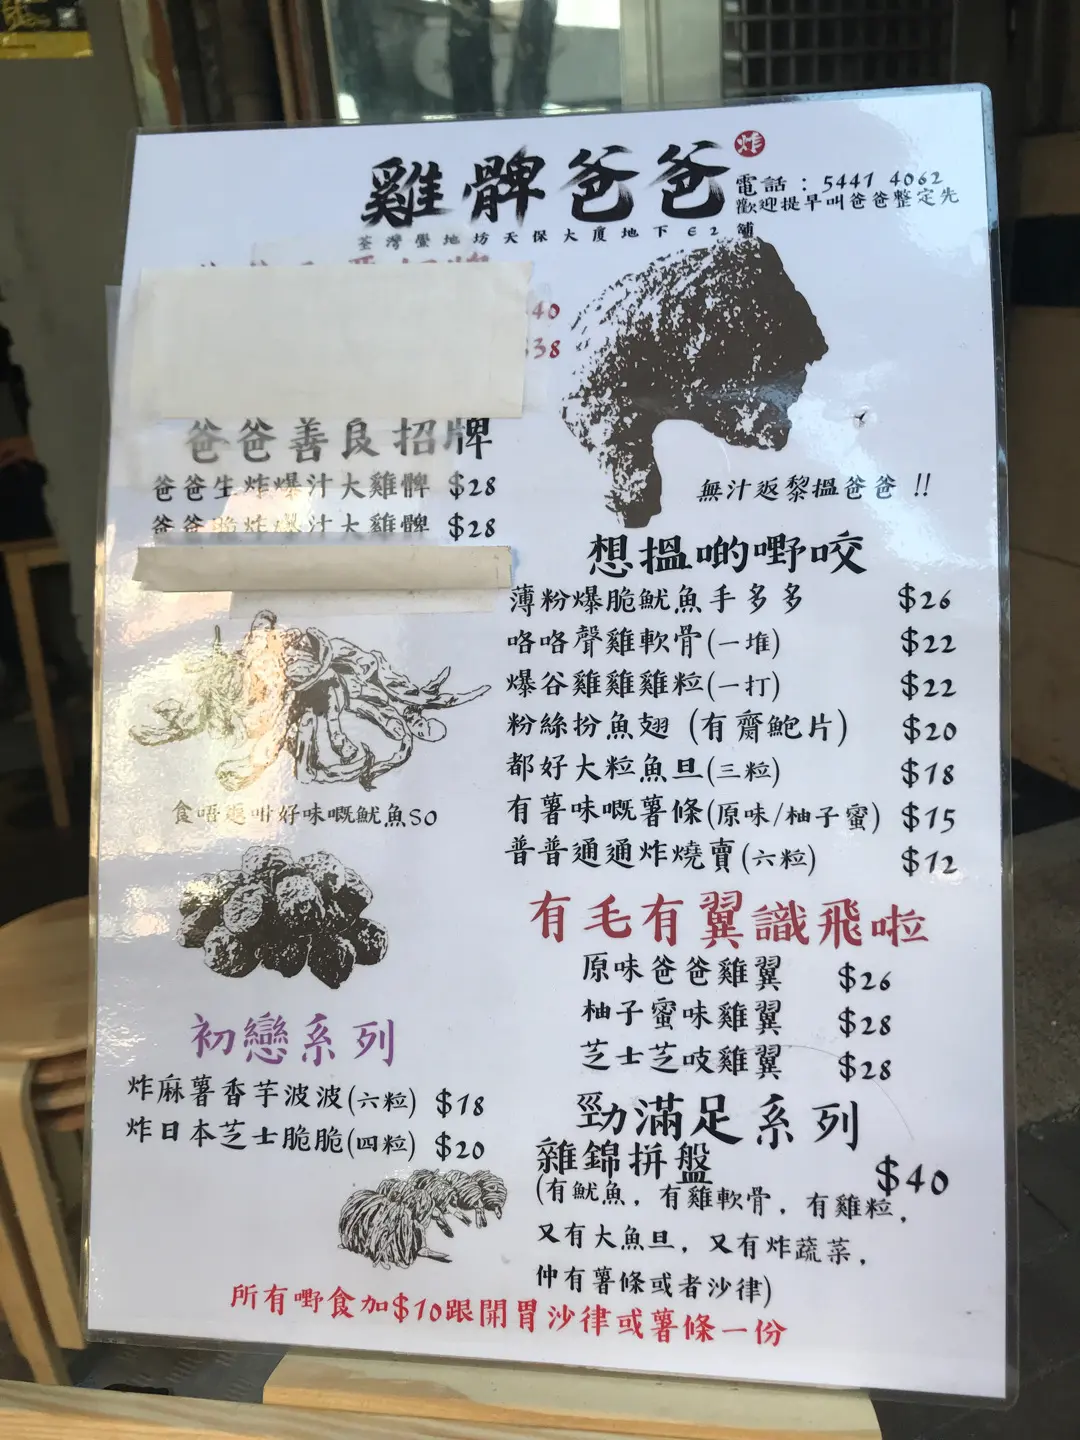 雞髀爸爸 炸
電話：5441 4062
歡迎提早叫爸爸整定先
荃灣壆地坊天保大廈地下E2舖
40
$38
爸爸善良招牌
爸爸生炸爆汁大雞髀 $28
爸爸脆炸爆汁大雞髀 $28
無汁返黎搵爸爸 !!
想搵啲嘢咬
薄粉爆脆魷魚手多多 $26
咯咯聲雞軟骨(一堆) $22
爆谷雞雞雞粒(一打) $22
粉絲扮魚翅 (有齋鮑片) $20
都好大粒魚旦(三粒) $18
有薯味嘅薯條(原味/柚子蜜) $15
普普通通炸燒賣(六粒) $12
食唔返咁好味嘅魷魚SO
有毛有翼識飛啦
原味爸爸雞翼 $26
柚子蜜味雞翼 $28
芝士芝吱雞翼 $28
初戀系列
炸麻薯香芋波波(六粒) $18
炸日本芝士脆脆(四粒) $20
勁滿足系列
雜錦拼盤 $40
(有魷魚，有雞軟骨，有雞粒，
又有大魚旦，又有炸蔬菜，
仲有薯條或者沙律)
所有嘢食加$10跟開胃沙律或薯條一份